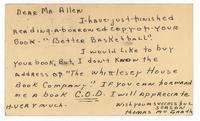 Dear Mr. Allen
I-have-just-finished
reading-a-borrowed copy-of-your
Book-"Better Basketball".
I would like to buy
your book, But, I don't know the
address of "The Whittlesey House
Book Company." If you can forward
me a book C.O.D. I will appreciate
it very much.
Wish you a successful
season
Thomas Mc Grath